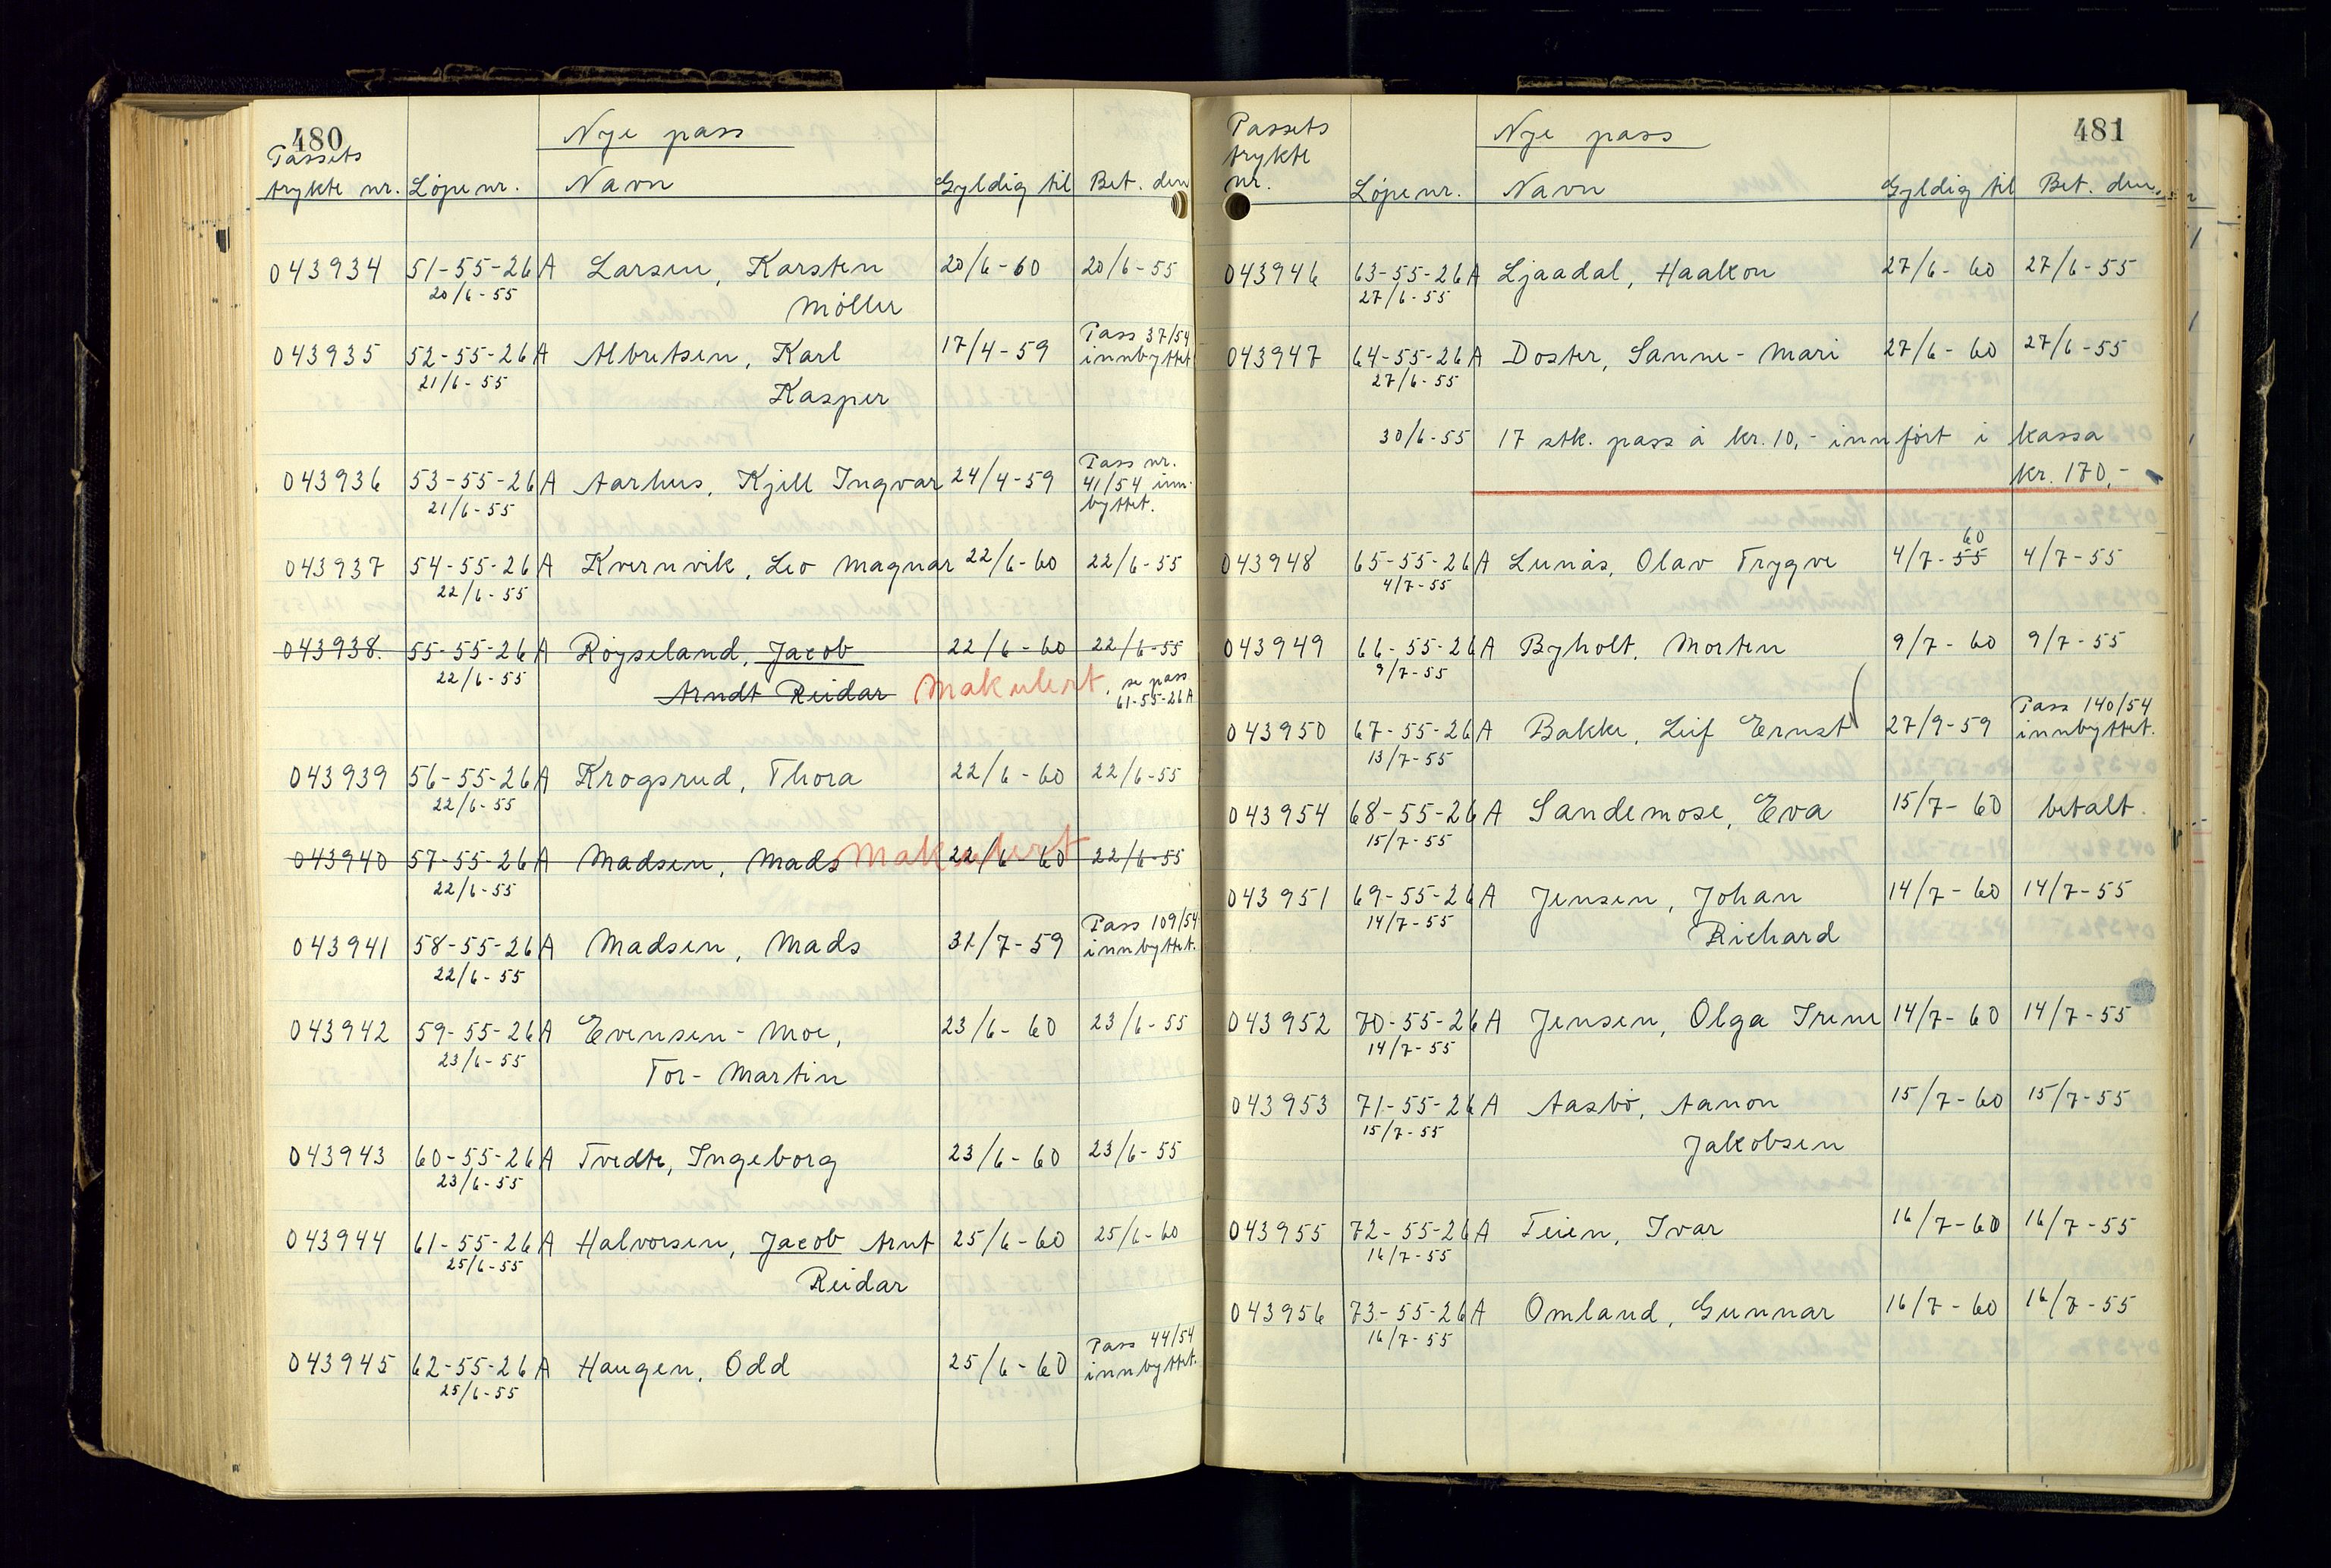 480
Nye pass
Passets
trykte nr. Löpenr. Navn Gyldig til Bet. den
043934 51-55-26A Larsen, Karsten 20/6-60 20/6-55
20/6-55 Möller
043935 52-55-26A Albretsen, Karl 17/4-59 Pass 37/54
21/6-55 innbyttet
Kasper
043936 53-55-26A Aarhus, Kjell Ingvar 24/4-59 Pass nr.
21/6-55 41/54 inn-
byttet.
043937 54-55-26A Kvernvik, Leo Magnar 22/6-60 22/6-55
22/6-55
043938. 55-55-26A Röyseland, Jacob 22/6-60 22/6-55
22/6-55 Arndt Reidar Makulert, se pass
61-55-26A
043939 56-55-26A Krogsrud, Thora 22/6-60 22/6-55
22/6-55
043940 57-55-26A Madsen, Mads Makulert 22/6-60 22/6-55
22/6-55
043941 58-55-26A Madsen, Mads 31/7-59 Pass 109/54
22/6-55 innbyttet.
043942 59-55-26A Evensen-Moe, 23/6-60 23/6-55
23/6-55 Tor-Martin
043943 60-55-26A Tvedte, Ingeborg 23/6-60 23/6-55
23/6-55
043944 61-55-26A Halvorsen, Jacob Arnt 25/6-60 25/6-60
25/6-55 Reidar
043945 62-55-26A Haugen, Odd 25/6-60 Pass 44/54
25/6-55 innbyttet.
481
Passets Nye pass
trykte
nr. Löpenr. Navn Gyldig til Bet. den
043946 63-55-26A Ljaadal, Haakon 27/6-60 27/6-55
27/6-55
043947 64-55-26A Doster, Sanne-Mari 27/6-60 27/6-55
27/6-55
30/6-55 17 stk. pass à kr. 10,- innfört i kassa
kr. 170,-
60
043948 65-55-26A Lunås, Olav Trygve 4/7-55 4/7-55
4/7-55
043949 66-55-26A Byholt, Morten 9/7-60 9/7-55
9/7-55
043950 67-55-26A Bakke, Leif Ernst 27/9-59 Pass 140/54
13/7-55 innbyttet.
043954 68-55-26A Sandemose, Eva 15/7-60 betalt.
15/7-55
043951 69-55-26A Jensen, Johan 14/7-60 14/7-55
14/7-55 Richard
043952 70-55-26A Jensen, Olga Irene 14/7-60 14/7-55
14/7-55
043953 71-55-26A Aasbö, Aanon 15/7-60 15/7-55
15/7-55 Jakobsen
043955 72-55-26A Teien, Ivar 16/7-60 16/7-55
16/7-55
043956 73-55-26A Omland, Gunnar 16/7-60 16/7-55
16/7-55